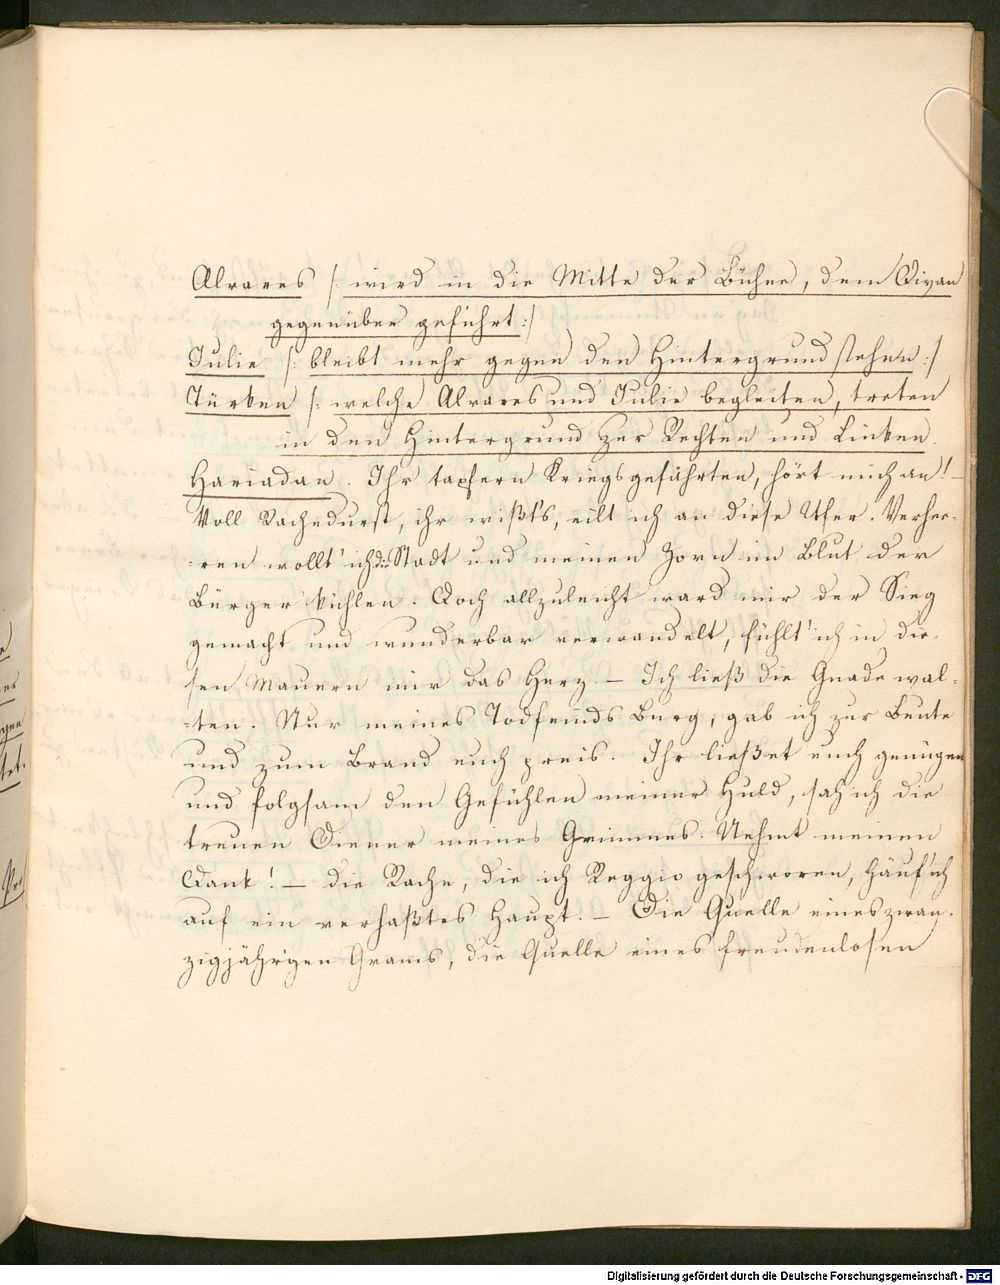 Alvares /: wird in die Mitte der Bühne, dem Divan
gegenüber geführt :/
Julie /: bleibt mehr gegen den Hintergrund stehen :/
Türken /: welche Alvares und Julie begleiten, treten
in den Hintergrund zur Rechten und Linken.
Hariadan. Ihr tapfern Kriegsgefährten, hört mich an! –
Voll Rachedurst, ihr wißt's, eilt ich an diese Ufer. Verhee-
-ren wollt' ich die Stadt und meinen Zorn im Blut der
Bürger kühlen. Doch allzuleicht ward mir der Sieg
gemacht und wunderbar verwandelt, fühlt' ich in die-
sen Mauern mir das Herz. – Ich ließ die Gnade wal-
-ten. Nur meines Todfeinds Burg, gab ich zur Beute
und zum Brand euch preis. Ihr ließet euch genügen
und folgsam den Gefühlen meiner Huld, sah ich die
treuen Diener meines Grimmes. Nehmt meinen
Dank! – Die Rache, die ich Reggio geschworen, häuf' ich
auf ein verhaßtes Haupt. – Die Quelle eines zwan-
zigjährigen Grams, die Quelle eines freudenlosen
Digitalisierung gefördert durch die Deutsche Forschungsgemeinschaft - DFG